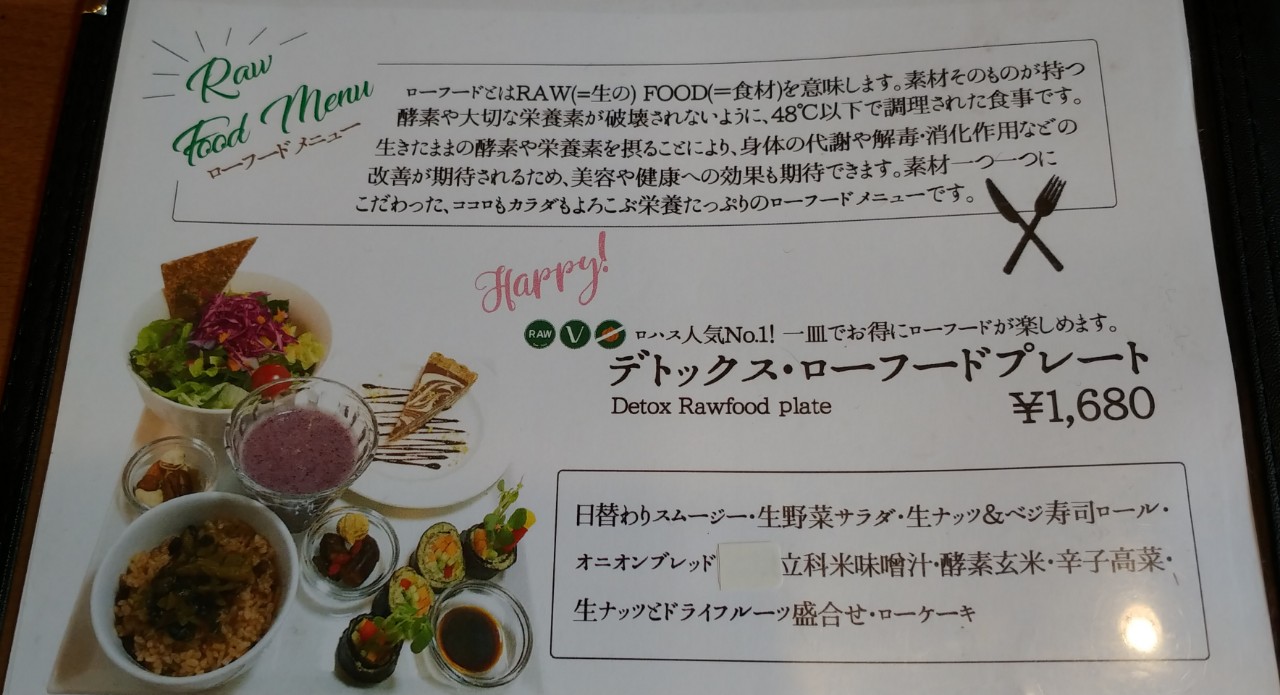 Raw
Food Menu
ローフードメニュー
ローフードとはRAW(=生の) FOOD(=食材)を意味します。素材そのものが持つ
酵素や大切な栄養素が破壊されないように、48℃以下で調理された食事です。
生きたままの酵素や栄養素を摂ることにより、身体の代謝や解毒・消化作用などの
改善が期待されるため、美容や健康への効果も期待できます。素材一つ一つに
こだわった、ココロもカラダもよろこぶ栄養たっぷりのローフードメニューです。
Happy!
RAW V ロハス人気No.1! 一皿でお得にローフードが楽しめます。
デトックス・ローフードプレート
Detox Rawfood plate ¥1,680
日替わりスムージー・生野菜サラダ・生ナッツ&ベジ寿司ロール・
オニオンブレッド 立科米味噌汁・酵素玄米・辛子高菜・
生ナッツとドライフルーツ盛合せ・ローケーキ